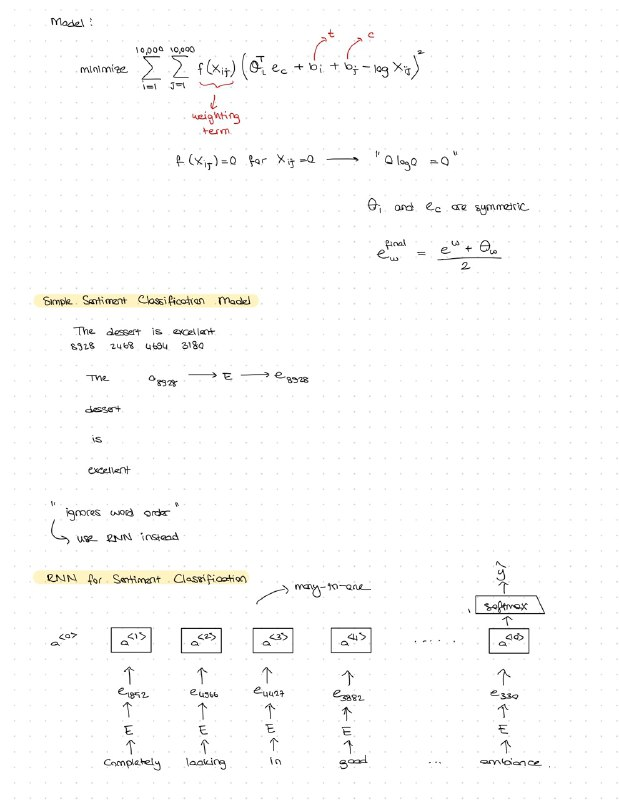 Model :
t c
minimize 10,000 Σ i=1 10,000 Σ j=1 f(Xij) (θiᵀ ec + bi + bj - log Xij)²
weighting
term
f(Xij)=0 for Xij=0 → "0 log0 = 0"
θi and ec are symmetric
ew^final = (e^w + θw) / 2
Simple Sentiment Classification Model
The dessert is excellent
8928 2468 4694 3180
The o8928 → E → e8928
dessert
is
excellent
"ignores word order"
↳ use RNN instead
RNN for Sentiment Classification
→ many-to-one
ŷ
softmax
a<0> a<1> a<2> a<3> a<4> ...... a<10>
e1852 e4966 e4427 e3882 e330
E E E E E
Completely lacking in good ... ambiance